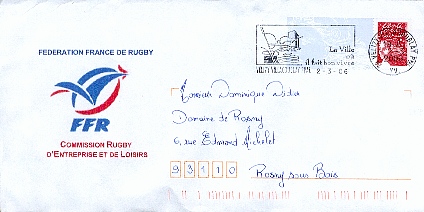 FEDERATION FRANCE DE RUGBY
FFR
COMMISSION RUGBY
D'ENTREPRISE ET DE LOISIRS
La Ville
où
il fait bon vivre
2-3-06
Monsieur Dominique
Domaine de Rosny
6, rue Edmond Michelet
93110 Rosny sous Bois